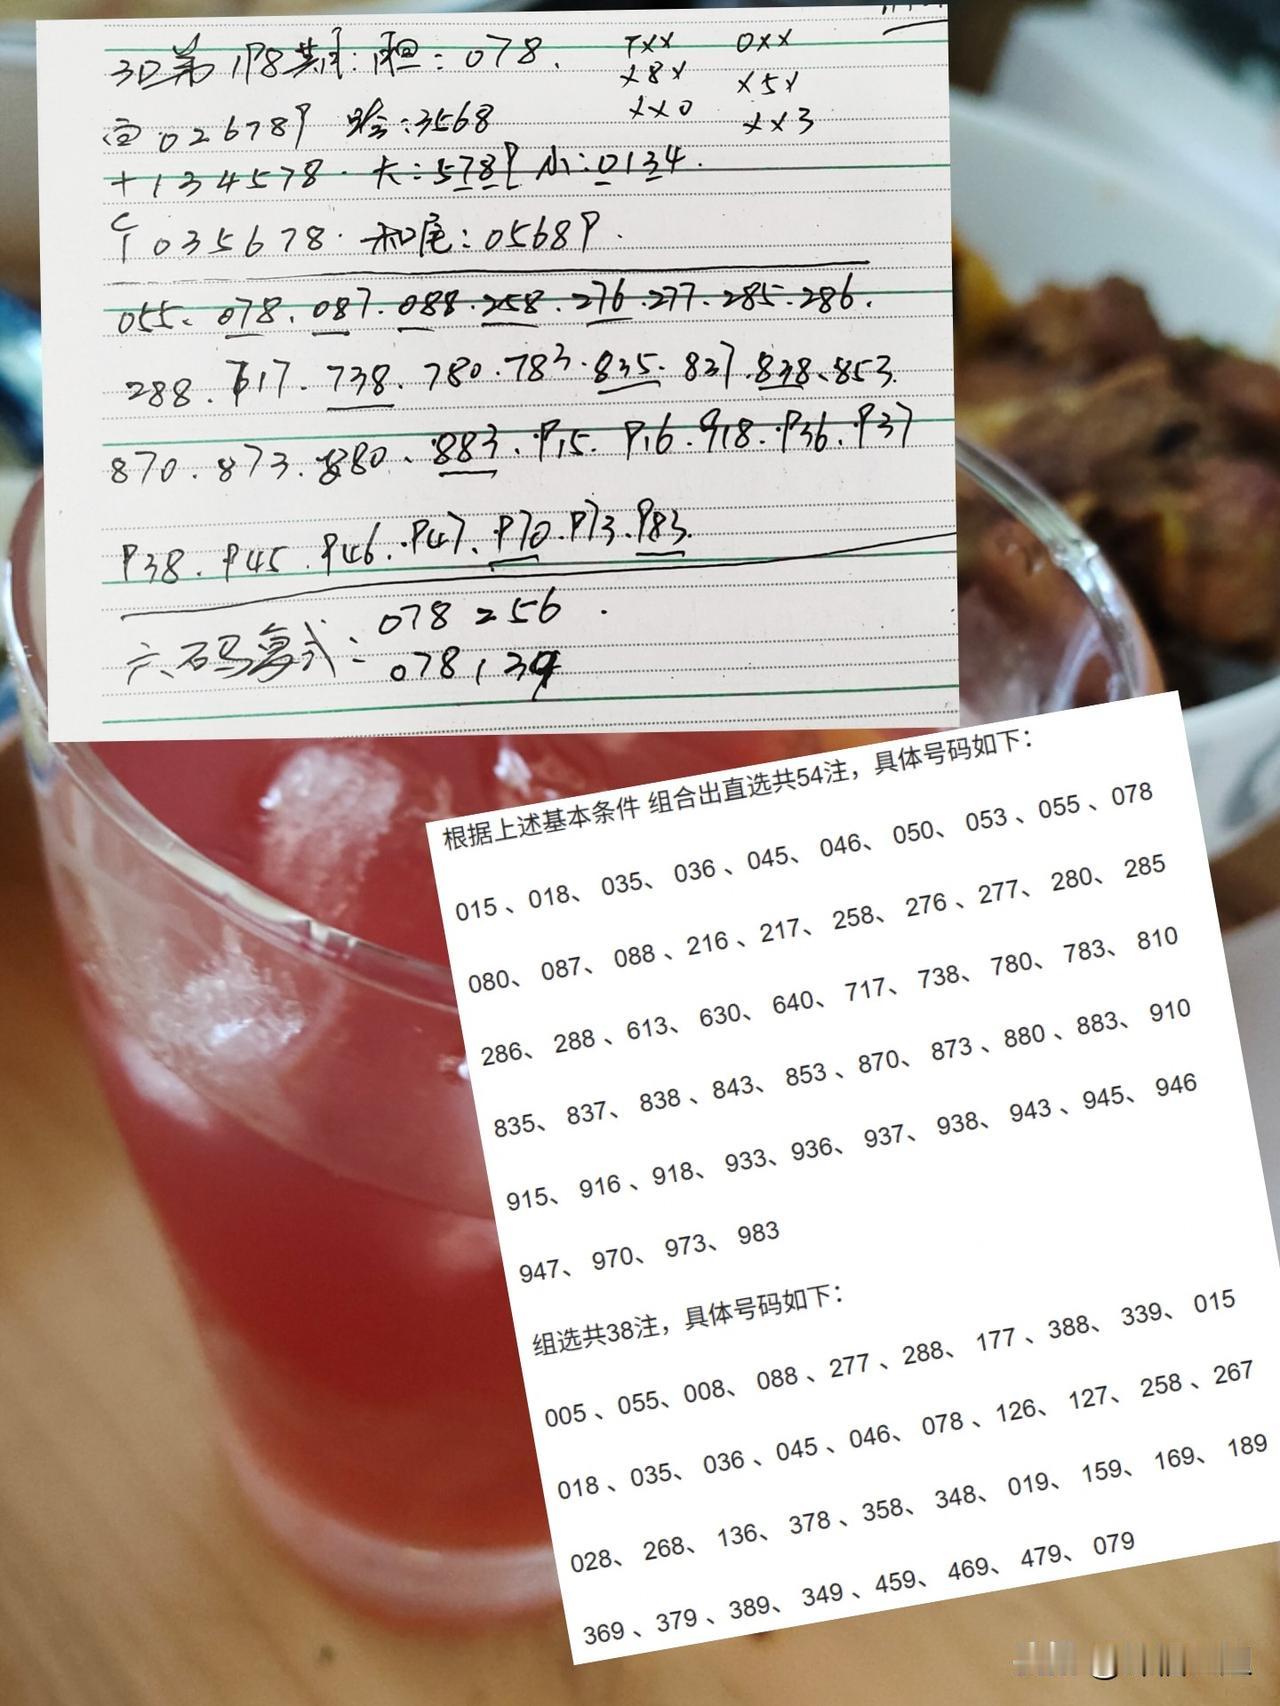 3D第198期:胆:078.
7XX 0XX
X8X X5X
XX0 XX3
百026789 跨:3568
十134578. 大:5789 小:0134.
个035678. 和尾:05689.
055、078、087.088.258.276.277.285.286.
288.717.738.780.783.835.837.838、853.
870.873.880、883、915.916.918.936.937
938.945.946.947、970.973.983.
六码复式:078 256.
078134
根据上述基本条件 组合出直选共54注，具体号码如下：
015、018、035、036、045、046、050、053、055、078
080、087、088、216、217、258、276、277、280、285
286、288、613、630、640、717、738、780、783、810
835、837、838、843、853、870、873、880、883、910
915、916、918、933、936、937、938、943、945、946
947、970、973、983
组选共38注，具体号码如下：
005、055、008、088、277、288、177、388、339、015
018、035、036、045、046、078、126、127、258、267
028、268、136、378、358、348、019、159、169、189
369、379、389、349、459、469、479、079